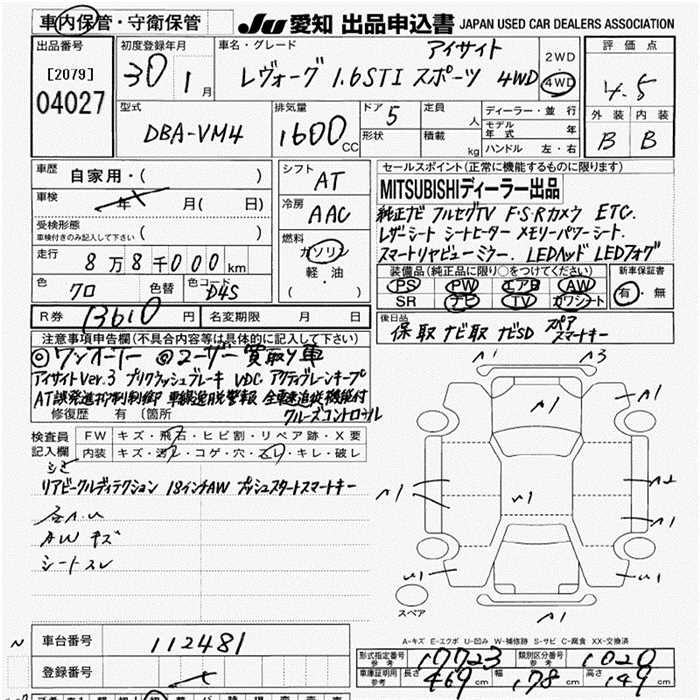 車内保管・守衛保管
JU 愛知 出品申込書 JAPAN USED CAR DEALERS ASSOCIATION
出品番号
[2079]
04027
初度登録年月
30 1月
車名・グレード
アイサイト
レヴォーグ 1.6STI スポーツ 4WD
2WD
4WD
評価点
4.5
外装 内装
B B
型式
DBA-VM4
排気量
1600CC
ドア 5
形状
定員 人
積載 kg
ディーラー・並行
モデル年式 年
ハンドル 左・右
車歴
自家用・( )
車検
年 月( 日)
受検形態
車検付きのみ記入して下さい ( )
走行
8万8千000km
色 クロ 色替 色コード D4S
シフト AT
冷房 AAC
燃料
ガソリン
軽・油
( )
R券 13610円 名変期限 月 日
セールスポイント(正常に機能するものに限ります)
MITSUBISHIディーラー出品
純正ナビ フルセグTV F・S・Rカメラ ETC.
レザーシート シートヒーター メモリーパワーシート.
スマートリヤビューミラー. LEDヘッド LEDフォグ
装備品(純正品に限り○をつけてください)
PS PW エアB AW
SR ナビ TV カワシート
新車保証書
有・無
後日品
保 取 ナビ取 ナビSD スペアスマートキー
注意事項申告欄(不具合内容等は具体的に記入して下さい)
◎ワンオーナー ◎ユーザー買取り車
アイサイトVer.3 プリクラッシュブレーキ VDC アクティブレーンキープ
AT誤発進抑制制御 車線逸脱警報 全車速追従機能付
クルーズコントロール
修復歴 有 (箇所
検査員記入欄
FW キズ・飛石・ヒビ割・リペア跡・X要
内装 キズ・汚れ・コゲ・穴・スレ・キレ・破レ
リアビークルディテクション 18インチAW プッシュスタートスマートキー
各ハ.U
AW キズ
シートスレ
スペア
A-キズ E-エクボ U-凹み W-補修跡 S-サビ C-腐食 XX-交換済
車台番号 112481
登録番号
形式指定番号 参考 17723
類別区分番号 参考 1020
車庫証明用 参考 長さ 469cm 幅 178cm 高さ 149cm